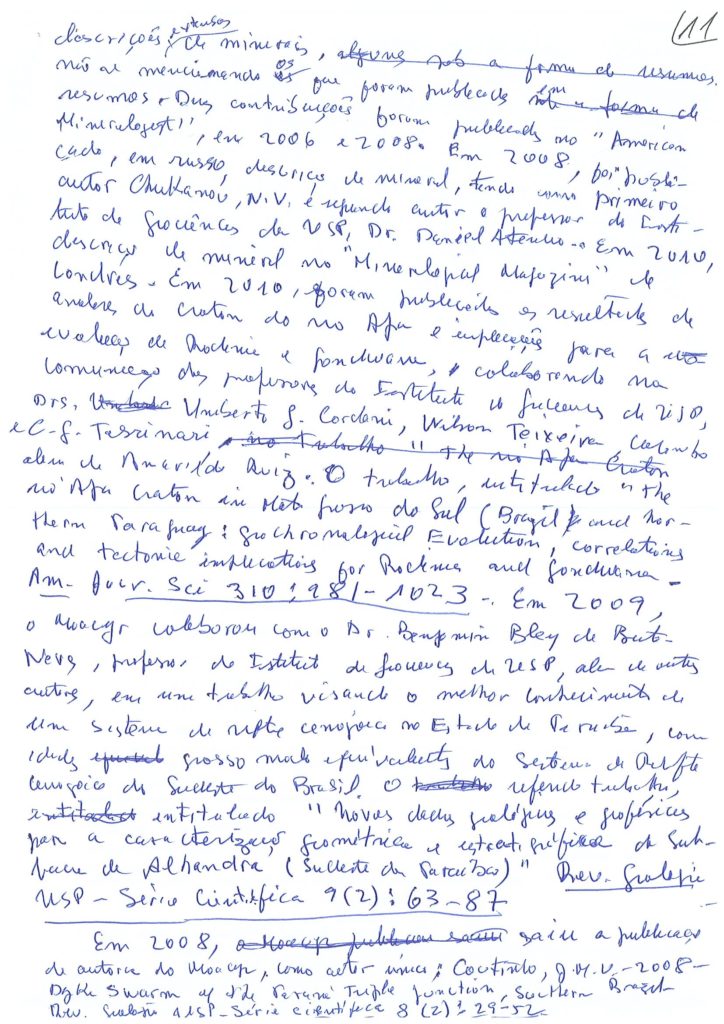 11
extensas
descrições de minerais, algumas sob a forma de resumos.
não se mencionando os que foram publicados em sob a forma de
resumos. Duas contribuições foram publicadas no "American
Mineralogist", em 2006 e 2008. Em 2008, foi publi-
cado, em russo, descrição de mineral, tendo como primeiro
autor Chukanov, N.V. e segundo autor o professor do Insti-
tuto de Geociências da USP, Dr. Daniel Atencio. Em 2010,
descrição de mineral no "Mineralogical Magazine" de
Londres. Em 2010, foram publicados os resultados de
análises do craton do rio Apa e implicações para a
evolução de Rodinia e Gondwana, colaborando na
comunicação dos professores do Instituto de Geociências da USP,
Drs. Umberto G. Cordani, Wilson Teixeira, Colombo
e C. G. Tassinari, no trabalho "The rio Apa Craton
alem de Amarildo Ruiz. O trabalho, intitulado "The
rio Apa Craton in Mato Grosso do Sul (Brazil) and nor-
thern Paraguay: geochronological Evolution, correlations
and tectonic implications for Rodinia and Gondwana.
Am. Jour. Sci 310: 981-1023. Em 2009,
o Moacyr colaborou com o Dr. Benjamin Bley de Brito
Neves, professor do Instituto de Geociências da USP, alem de outros
autores, em um trabalho visando o melhor conhecimento de
um sistema de rifts cenozoico no Estado da Paraíba, com
idades grosso modo equivalentes do Sistema de Rifts
cenozoico do Sudeste do Brasil. O trabalho referido trabalho,
entitulado entitulado "Novos dados geológicos e geofísicos
para a caracterização geométrica e estratigráfica da Sub-
bacia de Alhandra (Sudeste da Paraíba)" Rev. Geologia
USP - Série Científica 9(2): 63-87
Em 2008, o Moacyr saiu a publicação
de autoria do Moacyr, como autor único; Coutinho, J.M.V. - 2008 -
Dyke Swarm of the Paraná Triple Junction, Southern Brazil
Rev. Geologia USP - Série científica 8 (2): 29-52.